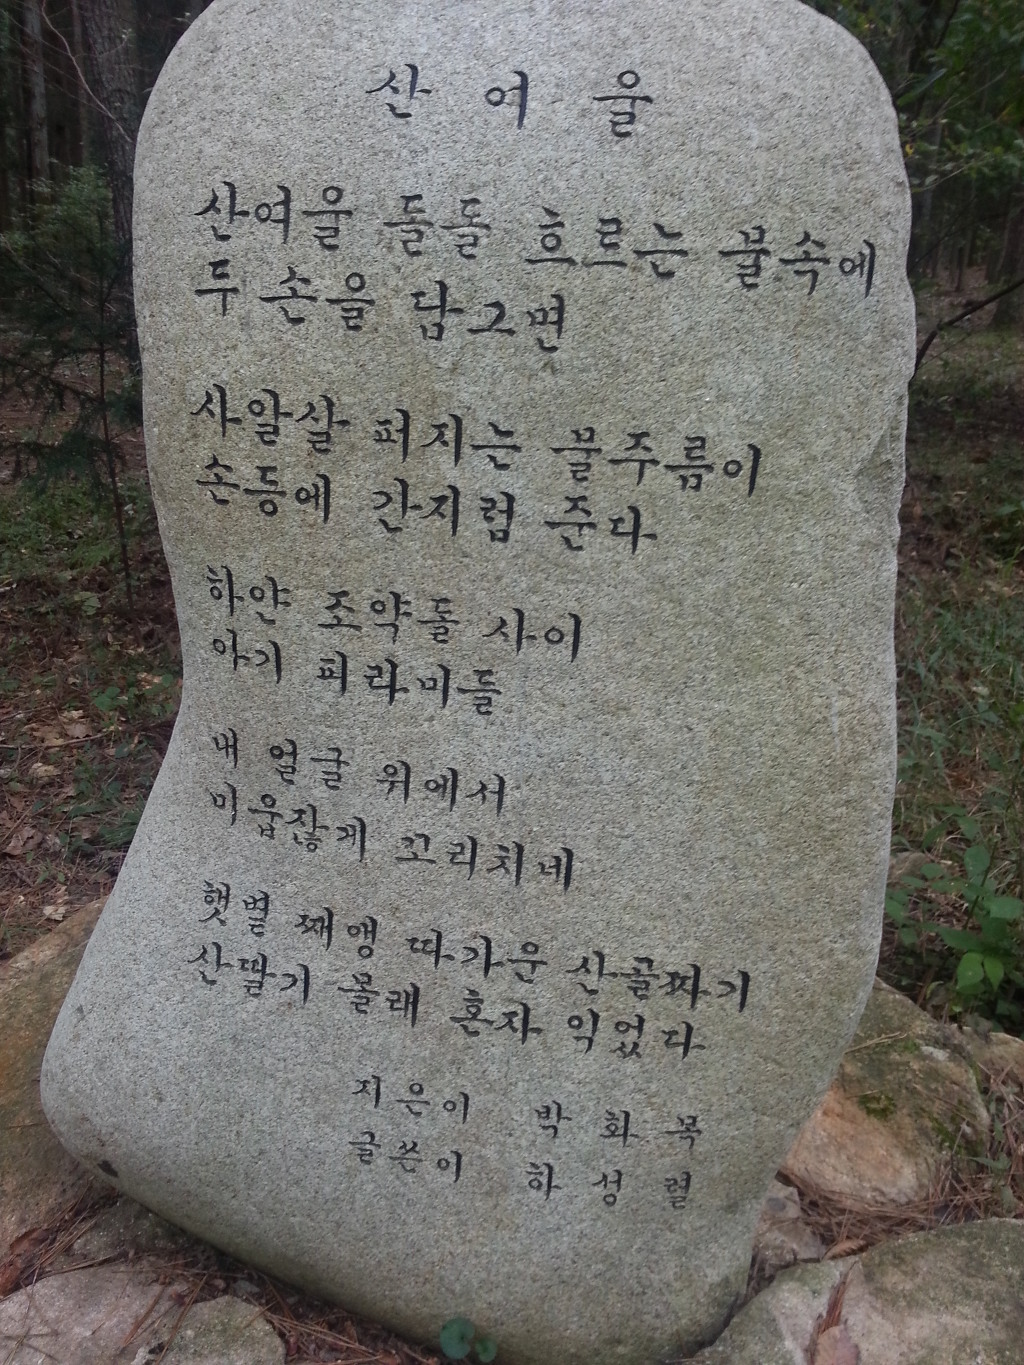 산여울
산여울 돌돌 흐르는 물속에
두 손을 담그면
사알살 퍼지는 물주름이
손등에 간지럼 준다
하얀 조약돌 사이
아기 피라미들
내 얼굴 위에서
미웁잖게 꼬리치네
햇볕 째앵 따가운 산골짜기
산딸기 몰래 혼자 익었다
지은이 박화목
글쓴이 하성렬